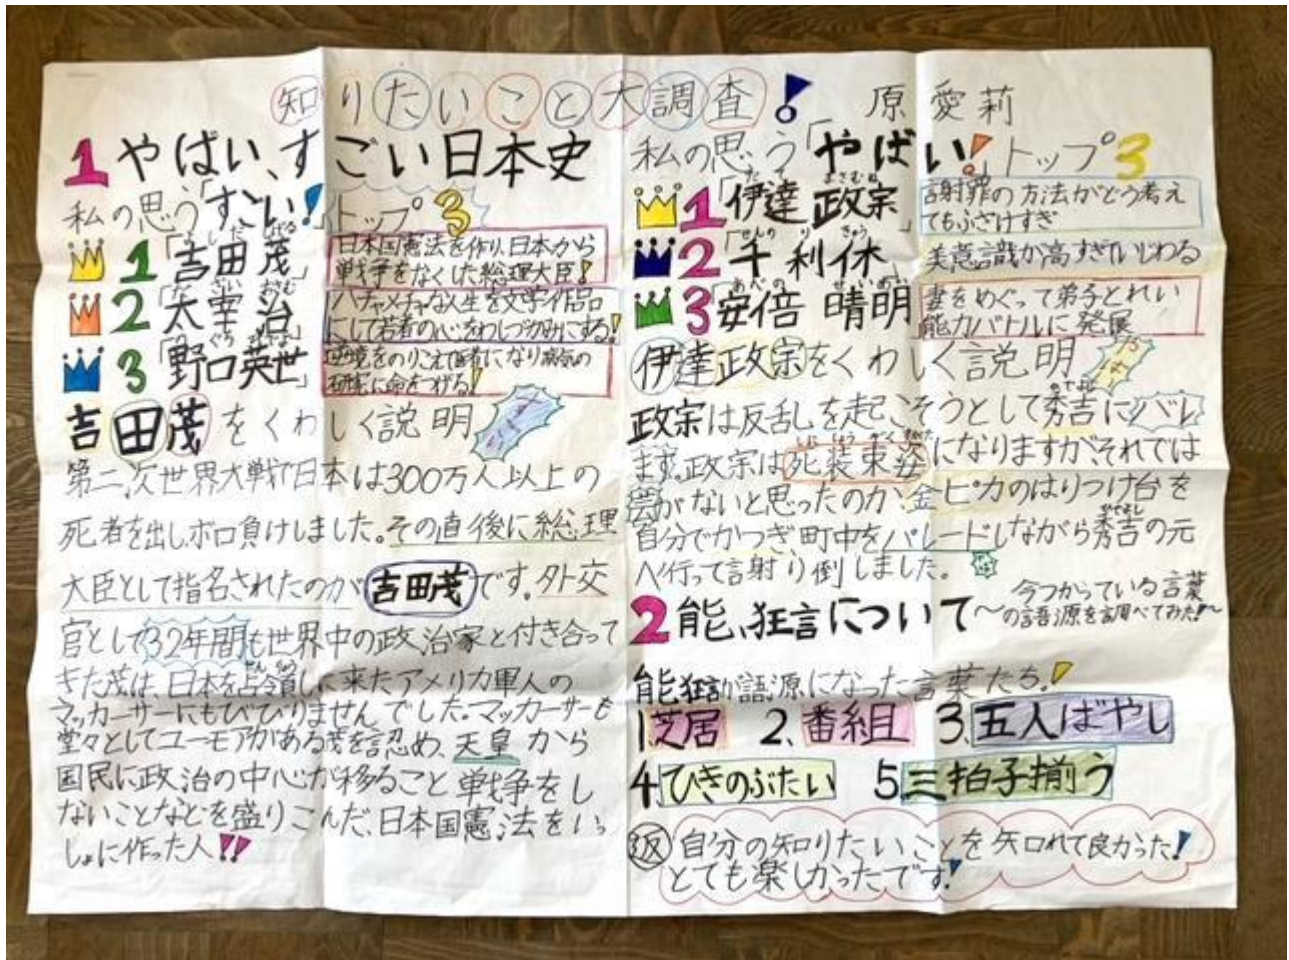 知りたいこと大調査! 原 愛莉
1 やばい、すごい日本史
私の思う「すごい!」トップ3
1「吉田 茂」
よしだ しげる
日本国憲法を作り、日本から
戦争をなくした総理大臣!
2「太宰 治」
だざい おさむ
ハチャメチャな人生を文学作品
にして若者の心をわしづかみにする!
3「野口英世」
のぐち ひでよ
逆境をのりこえて医者になり病気の
研究に命をつげる!
吉田茂をくわしく説明
第二次世界大戦で日本は300万人以上の
死者を出しボロ負けしました。その直後に総理
大臣として指名されたのが吉田茂です。外交
官として32年間も世界中の政治家と付き合って
きた茂は、日本を占領しに来たアメリカ軍人の
せんりょう
マッカーサーにもびびりませんでした。マッカーサーも
堂々としてユーモアがある茂を認め、天皇から
国民に政治の中心が移ること 戦争をし
ないことなどを盛りこんだ、日本国憲法をいっ
しょに作った人!!
私の思う「やばい!」トップ3
1「伊達 政宗」
だて まさむね
謝罪の方法がどう考え
てもふざけすぎ
2「千 利休」
せんの りきゅう
美意識が高すぎていじわる
3「安倍 晴明」
あべの せいめい
妻をめぐって弟子とれい
能力バトルに発展
伊達政宗をくわしく説明
政宗は反乱を起こそうとして秀吉にバレ
ひでよし
ます。政宗は死装束姿になりますがそれでは
しにしょうぞくすがた
がないと思ったのか、金ピカのはりつけ台を
自分でかつぎ町中をパレードしながら秀吉の元
ひでよし
へ行って謝り倒しました。
2 能、狂言について〜今つかっている言葉
の語源を調べてみた!!〜
能狂言が語源になった言葉たち!
1芝居 2、番組 3、五人ばやし
4、ひきのぶたい 5三拍子揃う
自分の知りたいことを知れて良かった!
とても楽しかったです!